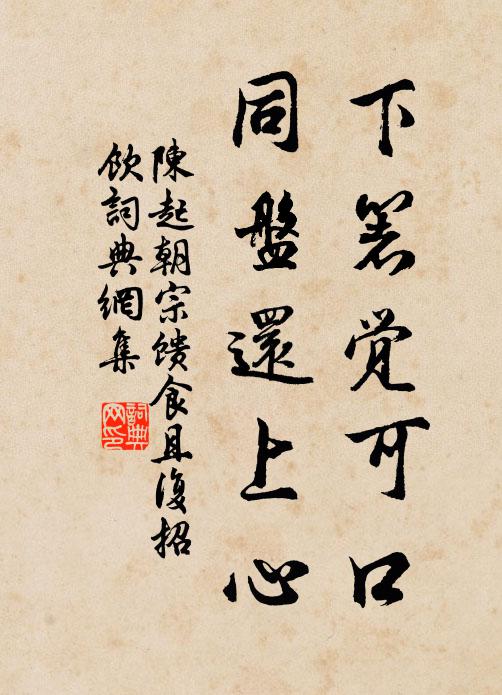 下箸觉可口
同盤還上心
陳起朝宗馈食且復招
飲詞典網集
詞典网印